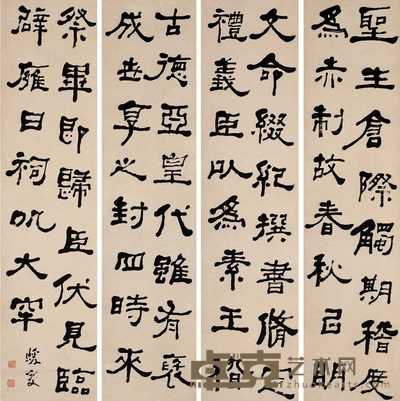 聖生倉際觸期稽度
為赤制故春秋㠯明
文命綴紀撰書脩定
禮義臣以為素王稽
古德亞皇代雖有褒
成世享之封四時來
祭畢即歸臣伏見臨
辟雍日祠孔大牢
蝯叟
卓克艺术网